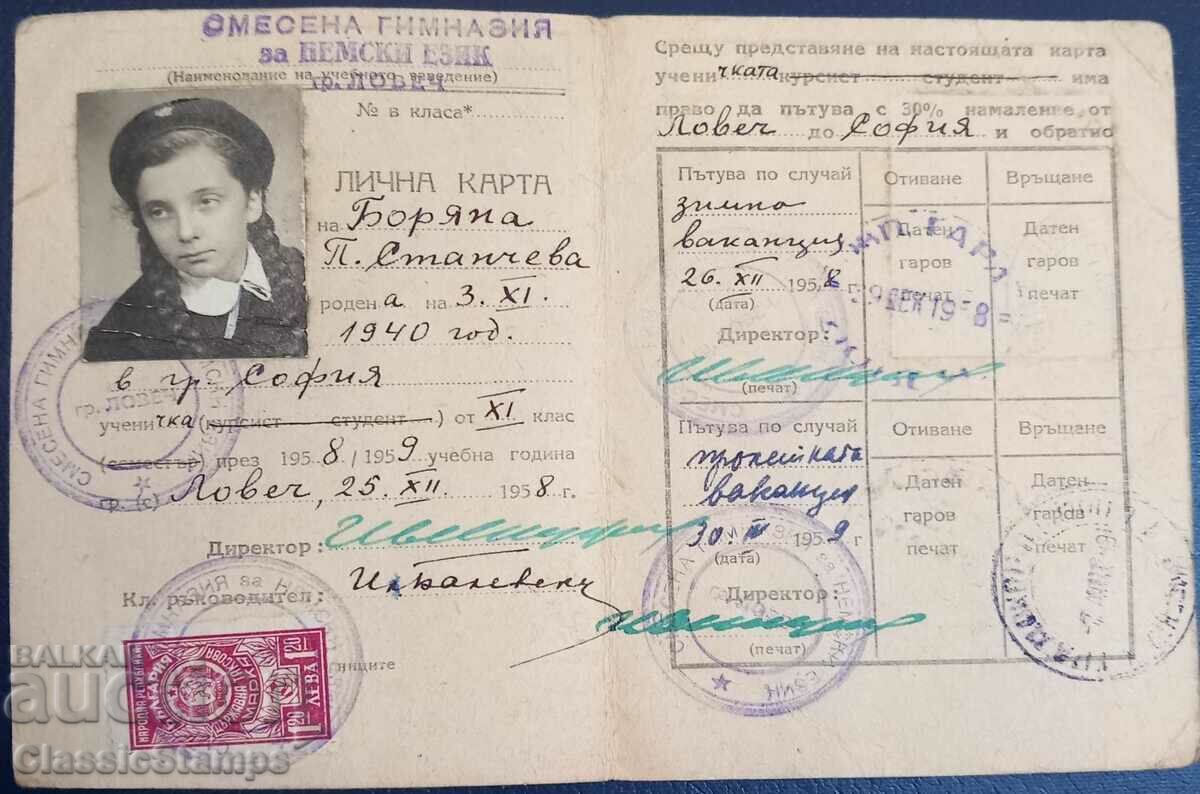 СМЕСЕНА ГИМНАЗИЯ
за НЕМСКИ ЕЗИК
(Наименование на учебното заведение)
гр. ЛОВЕЧ
№ в класа*
ЛИЧНА КАРТА
на Боряна
П. Станчева
родена на 3. XI.
1940 год.
в гр. София
ученичка (курсист студент) от XI клас
(семестър) през 1958/1959 учебна година
гр. (с) Ловеч, 25. XII. 1958 г.
Директор:
Кл. ръководител:
НАРОДНА РЕПУБЛИКА
БЪЛГАРИЯ
ДЪРЖАВНА ТАКСОВА
МАРКА
1 20 ЛЕВА 1 20
BALKAN
auc
ClassicStamps
Срещу представяне на настоящата карта
ученичката курсист студент има
право да пътува с 30% намаление от
Ловеч до София и обратно
Пътува по случай Отиване Връщане
зимна
ваканция
26. XII 1958 г.
(дата)
Директор:
(печат)
Датен
гаров
печат
Датен
гаров
печат
ГАРА
Пътува по случай Отиване Връщане
пролетната
ваканция
30. III 1959 г
(дата)
Директор:
(печат)
Датен
гаров
печат
Датен
гаров
печат
СМЕСЕНА ГИМНАЗИЯ за НЕМСКИ ЕЗИК
гр. ЛОВЕЧ